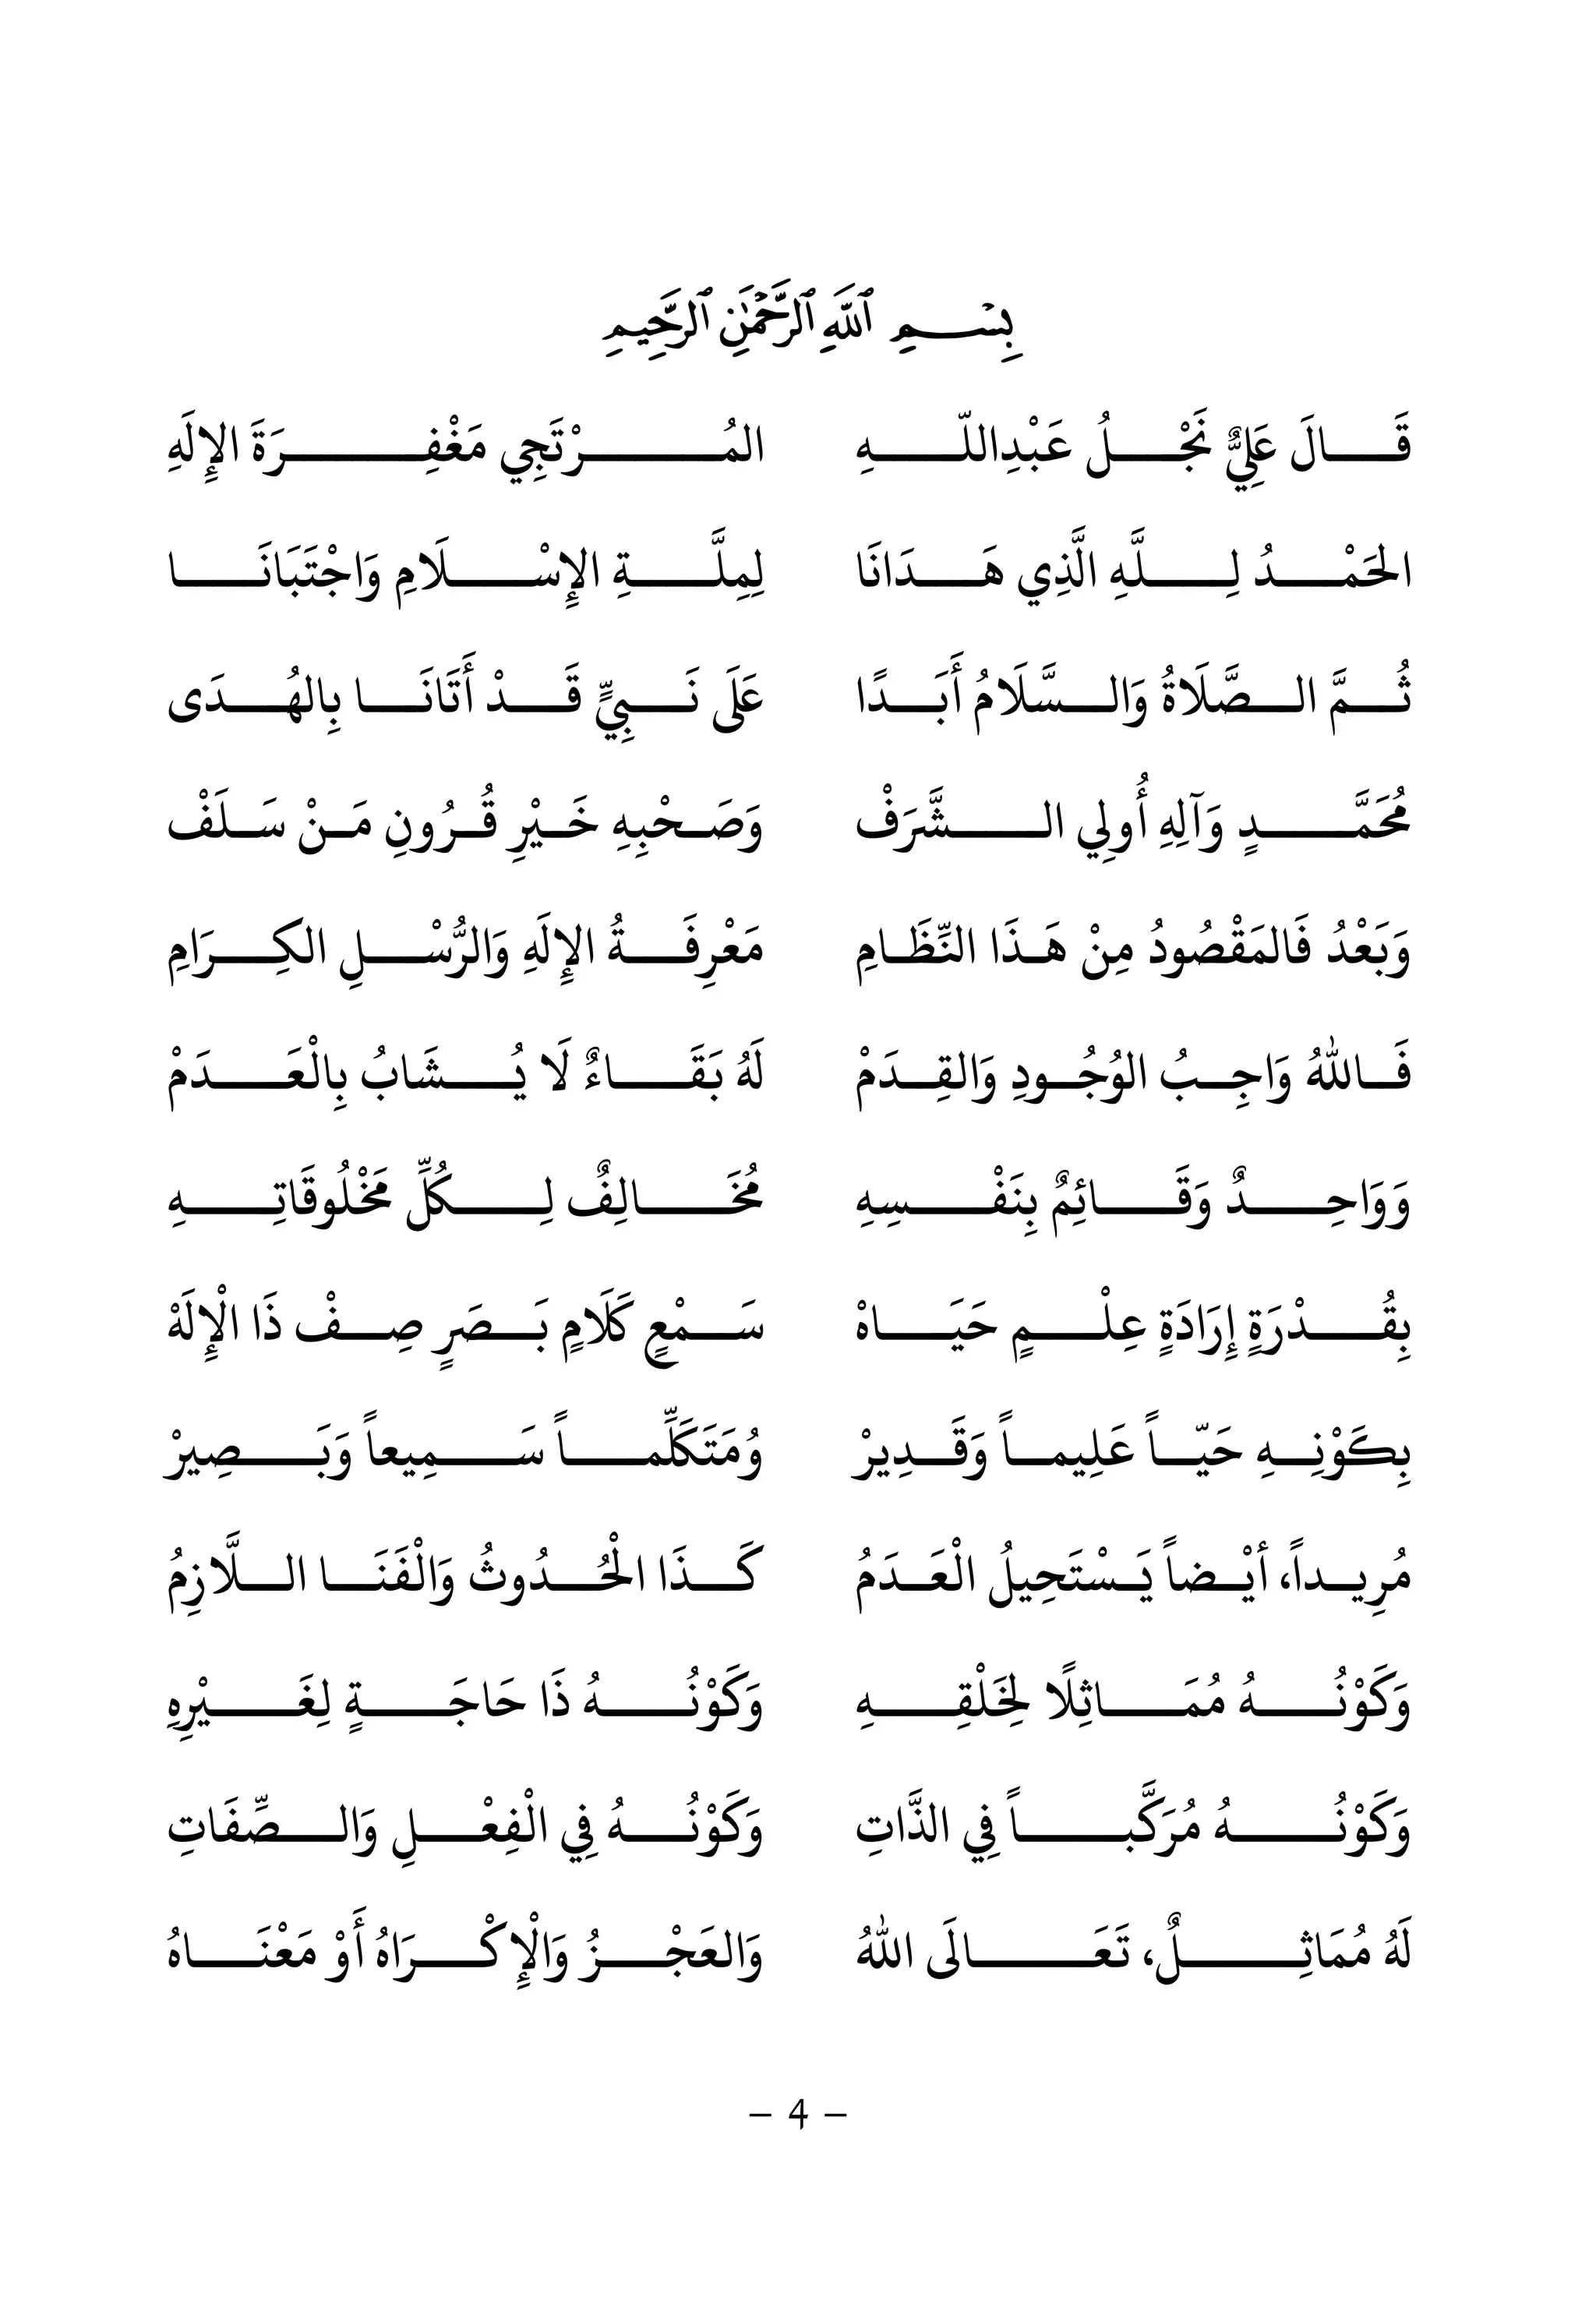 بِسْمِ ٱللَّهِ ٱلرَّحْمَٰنِ ٱلرَّحِيمِ
قَالَ عَلِيٌّ نَجْلُ عَبْدِاللّهِ المُرْتَجِي مَغْفِرَةَ الإِلَهِ
الحَمْدُ لِلَّهِ الَّذِي هَدَانَا لِمِلَّةِ الإِسْلَامِ وَاجْتَبَانَا
ثُمَّ الصَّلَاةُ وَالسَّلَامُ أَبَدًا عَلَى نَبِيٍّ قَدْ أَتَانَا بِالهُدَى
مُحَمَّدٍ وَآلِهِ أُولِي الشَّرَفْ وَصَحْبِهِ خَيْرِ قُرُونِ مَنْ سَلَفْ
وَبَعْدُ فَالمَقْصُودُ مِنْ هَذَا النِّظَامِ مَعْرِفَةُ الإِلَهِ وَالرُّسْلِ الكِرَامِ
فَاللهُ وَاجِبُ الوُجُودِ وَالقِدَمْ لَهُ بَقَاءٌ لَا يُشَابُ بِالْعَدَمْ
وَوَاحِدٌ وَقَائِمٌ بِنَفْسِهِ مُخَالِفٌ لِكُلِّ مَخْلُوقَاتِهِ
بِقُدْرَةٍ إِرَادَةٍ عِلْمٍ حَيَاهْ سَمْعٍ كَلَامٍ بَصَرٍ صِفْ ذَا الْإِلَهْ
بِكَوْنِهِ حَيّاً عَلِيماً وَقَدِيرْ وُمَتَكَلِّماً سَمِيعاً وَبَصِيرْ
مُرِيداً، أيْضاً يَسْتَحِيلُ الْعَدَمُ كَذَا الْحُدُوثُ وَالْفَنَا اللَّازِمُ
وَكَوْنُهُ مُمَاثِلًا لِخَلْقِهِ وَكَوْنُهُ ذَا حَاجَةٍ لِغَيْرِهِ
وَكَوْنُهُ مُرَكَّباً فِي الذَّاتِ وَكَوْنُهُ فِي الْفِعْلِ وَالصِّفَاتِ
لَهُ مُمَاثِلٌ، تَعَالَى اللهُ وَالعَجْزُ وَالْإِكْرَاهُ أَوْ مَعْنَاهُ
– 4 –